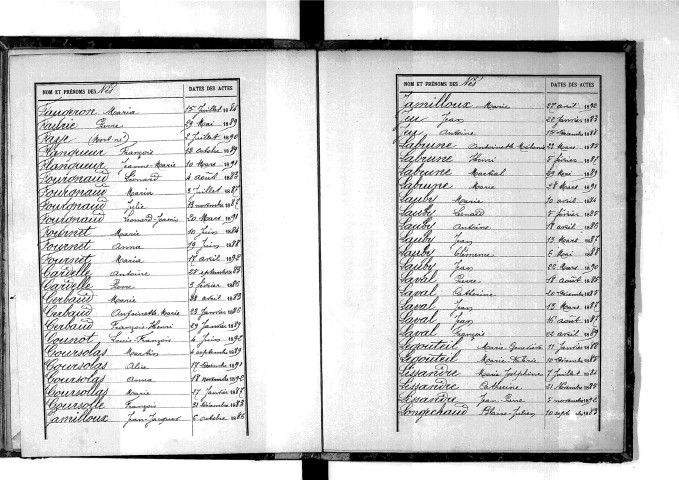 NOM ET PRÉNOMS DES Nés DATES DES ACTES
Faugeron Maria 15 Juillet 1884
Faurie Pierre 29 Mai 1889
Faye (mort né) 2 Juillet 1890
Flanqueur François 12 octobre 1889
Flanqueur Jeanne-Marie 10 Mars 1891
Fourgnaud Léonard 4 août 1883
Fourgnaud Maria 3 Juillet 1887
Fourgnaud Julie 13 novembre 1887
Fourgnaud Léonard 20 Mars 1891
Fournet Marie 10 Juin 1884
Fournet Anna 19 Juin 1888
Fournet Maria 17 avril 1892
Antoine 28 septembre 1883
Pierre 3 février 1886
Gerbaud Marie 22 avril 1883
Gerbaud Antoinette Marie 23 Janvier 1886
Gerbaud François Henri 29 Janvier 1889
Gounot Louis François 4 Juin 1892
Goursolas Martin 4 septembre 1889
Goursolas Alice 17 Décembre 1891
Goursolas Anna 18 Novembre 1892
Goursollas Marie 27 Janvier 1887
Goursolle François 21 Décembre 1883
Jamilloux Jean Jacques 6 octobre 1886
NOM ET PRÉNOMS DES Nés DATES DES ACTES
Jamilloux Marie 27 avril 1892
Jeu Jean 22 Janvier 1883
Jeu Antoine 15 Décembre 1888
Labrune Antoinette 22 Mars 1885
Labrune Henri 5 février 1887
Labrune Martial 29 Mai 1889
Labrune Marie 28 Mars 1891
Lauby Marie 10 avril 1884
Lauby Léonard 5 février 1885
Lauby Antoine 18 avril 1886
Lauby Jean 13 Mars 1887
Lauby Clémence 6 Mai 1888
Lauby Jean 22 Mars 1890
Laval Pierre 18 août 1885
Laval Catherine 20 Décembre 1885
Laval Jean 12 Mars 1887
Laval Jean 16 août 1887
Laval François 22 avril 1889
Legouteil Marie 11 Janvier 1888
Legouteil Marie Valérie 10 Décembre 1888
Lissandre Marie Joséphine 7 Juillet 1881
Lissandre Catherine 21 Novembre 1884
Lissandre Jean Pierre 5 novembre 1892
Longechaud Blaise Julien 10 sept 1883